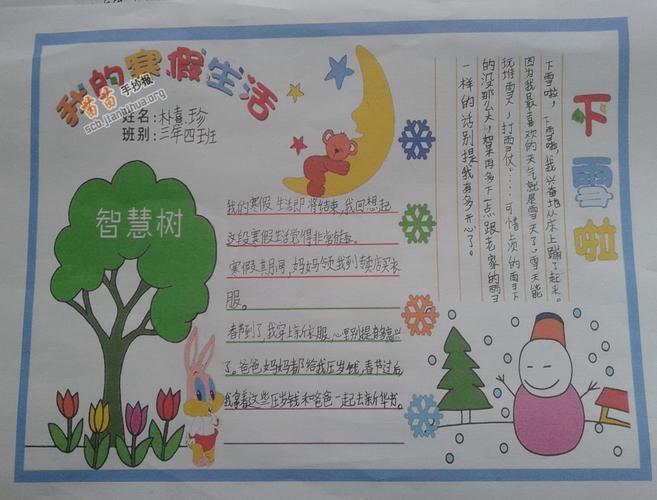 我的寒假生活
苗苗手抄报
scb.jianbihua.org
姓名:朴真珍
班别:三年四班
智慧树
我的寒假生活即将结束,我回想起
这段寒假生活觉得非常
寒假其间,妈妈领我到专卖店买衣
服。
春节到了,我穿上新衣服,心里别提多高兴
了。爸爸、妈妈都给我压岁钱,春节过后
我拿着这些压岁钱和爸爸一起去新华书。
下雪啦
下雪啦,下雪啦,我兴奋地从床上蹦了起来。
因为我最喜欢的天气就是雪天了。雪天能
玩堆雪人,打雪仗。……可惜上次的雪下
的没那么大,如果再多下一点跟老家的雪
一样的话别提我有多开心了。